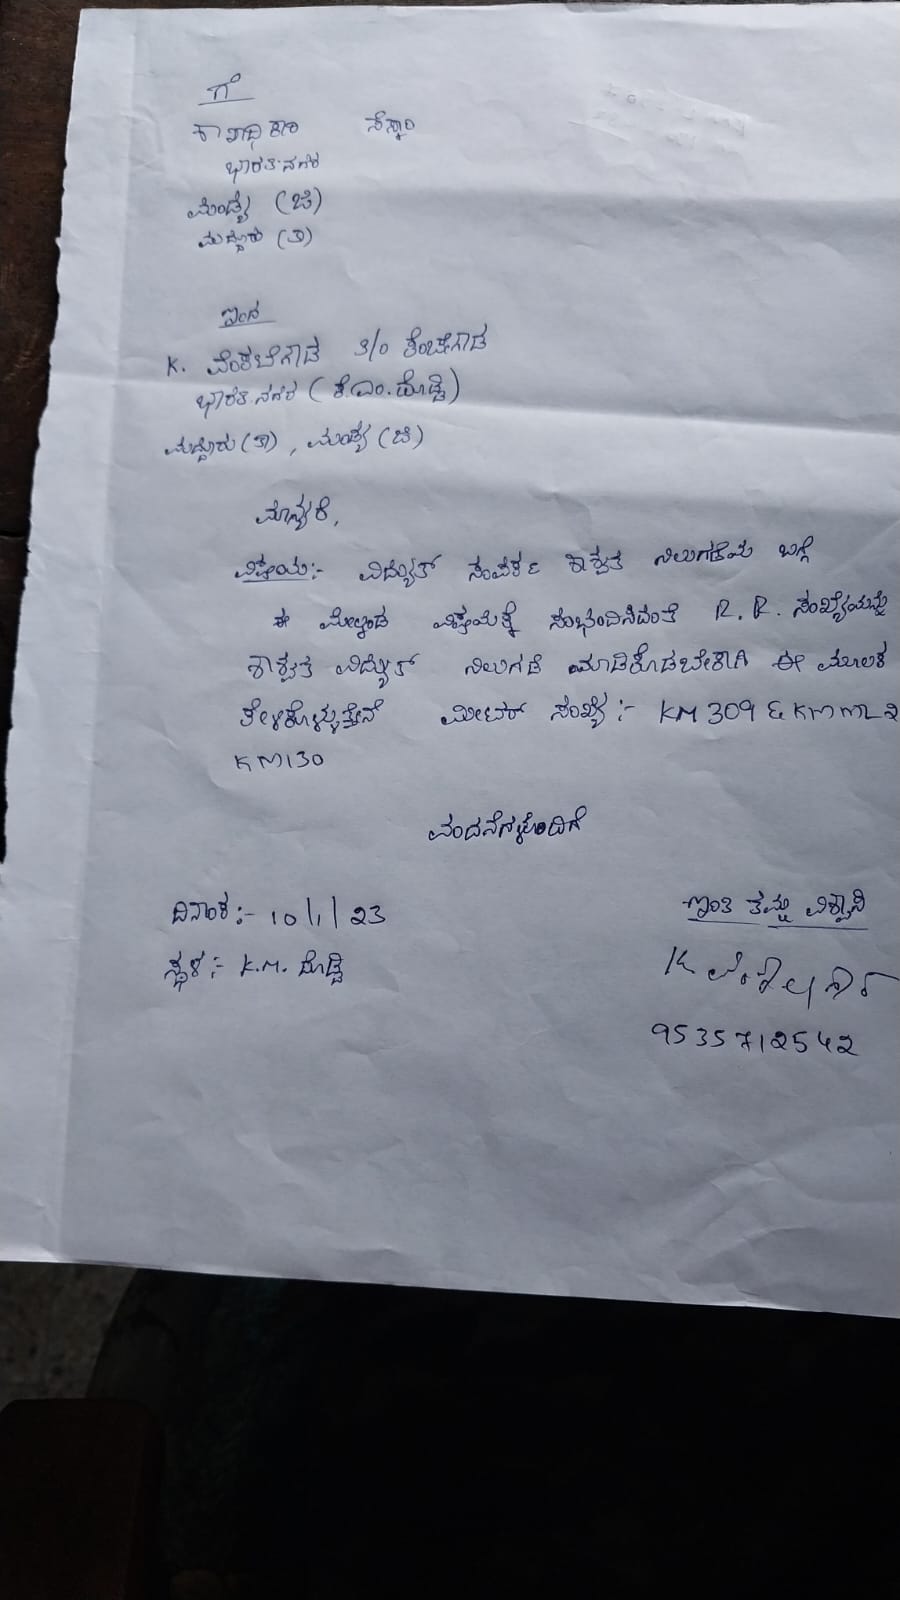 ಗೆ
ಸೆಸ್ಕಾಂ
ಭಾರತಿ ನಗರ
ಮಂಡ್ಯ (ಜಿ)
ಮದ್ದೂರು (ತಾ)
ಇಂದ
K. ವೆಂಕಟೇಗೌಡ S/o ಕೆಂಚೇಗೌಡ
ಭಾರತಿ ನಗರ (ಕೆ.ಎಂ. ದೊಡ್ಡಿ)
ಮದ್ದೂರು (ತಾ), ಮಂಡ್ಯ (ಜಿ)
ಮಾನ್ಯರೆ,
ವಿಷಯ:- ವಿದ್ಯುತ್ ಸಂಪರ್ಕ ಶಾಶ್ವತ ನಿಲುಗಡೆಯ ಬಗ್ಗೆ
ಈ ಮೇಲ್ಕಂಡ ವಿಷಯಕ್ಕೆ ಸಂಭಂದಿಸಿದಂತೆ R.R. ಸಂಖ್ಯೆಯನ್ನು
ಶಾಶ್ವತ ವಿದ್ಯುತ್ ನಿಲುಗಡೆ ಮಾಡಿಕೊಡಬೇಕಾಗಿ ಈ ಮೂಲಕ
ಕೇಳಿಕೊಳ್ಳುತ್ತೇನೆ ಮೀಟರ್ ಸಂಖ್ಯೆ:- KM 309 & KMML2
KM130
ವಂದನೆಗಳೊಂದಿಗೆ
ದಿನಾಂಕ:- 10/1/23
ಇಂತಿ ತಮ್ಮ ವಿಶ್ವಾಸಿ
ಸ್ಥಳ:- K.M. ದೊಡ್ಡಿ
9535712542